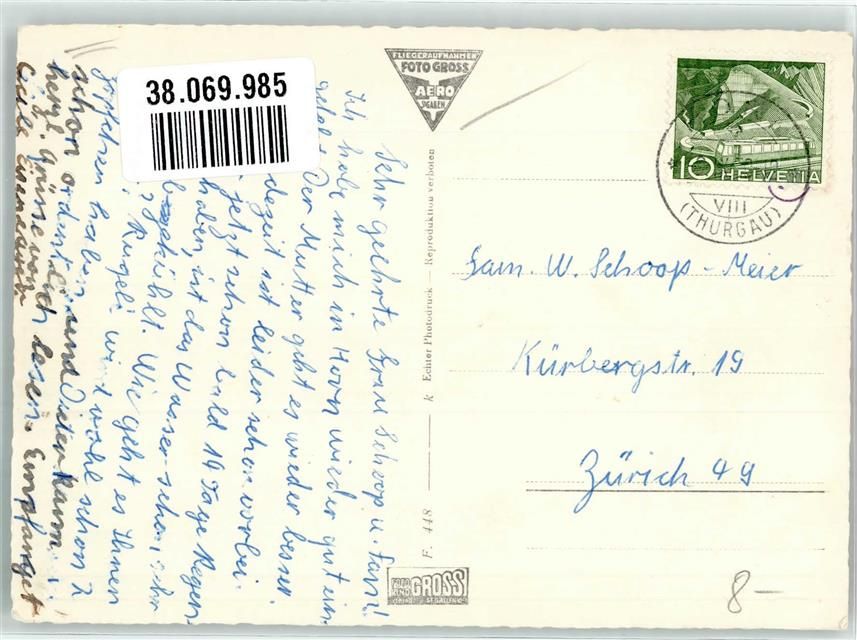 38.069.985
FLIEGERAUFNAHMEN
FOTO GROSS
AERO
ST. GALLEN
10 HELVETIA
VIII
(THURGAU)
Sehr geehrte Frau Schoop u. Fam!
Ich habe mich in Horn wieder gut ein-
gelebt. Der Mutter geht es wieder besser.
dezeit ist leider schon vorbei.
jetzt schon bald 14 Tage Regen
haben, ist das Wasser schon sehr
abgekühlt. Wie geht es Ihnen
Rugeli wird wohl schon 2
Zöpfchen haben und Dieter kann
schon ordentlich lesen. Empfanget
herzl. Grüsse von
Fam. W. Schoop-Meier
Kürbergstr. 19
Zürich 49
F. 448
k Echter Photodruck — Reproduktion verboten
FOTO GROSS
ST. GALLEN
8-